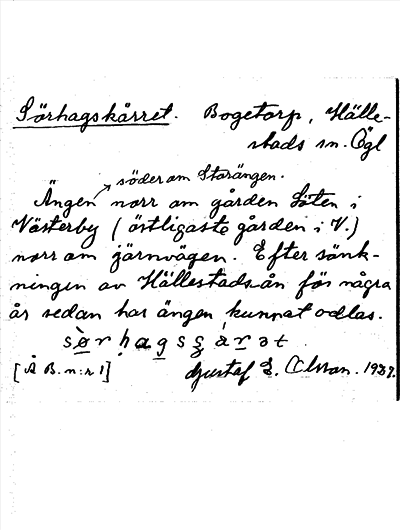 Sörhagskärret. Bogetorp, Hälle-
stads sn. Ögl
söder om Storängen.
Ängen norr om gården Löten i
Västerby (östligaste gården i V.)
norr om järnvägen. Efter sänk-
ningen av Hällestads-ån för några
år sedan har ängen kunnat odlas.
[Å B. n:r 1] Gustaf E. Olsson. 1937.